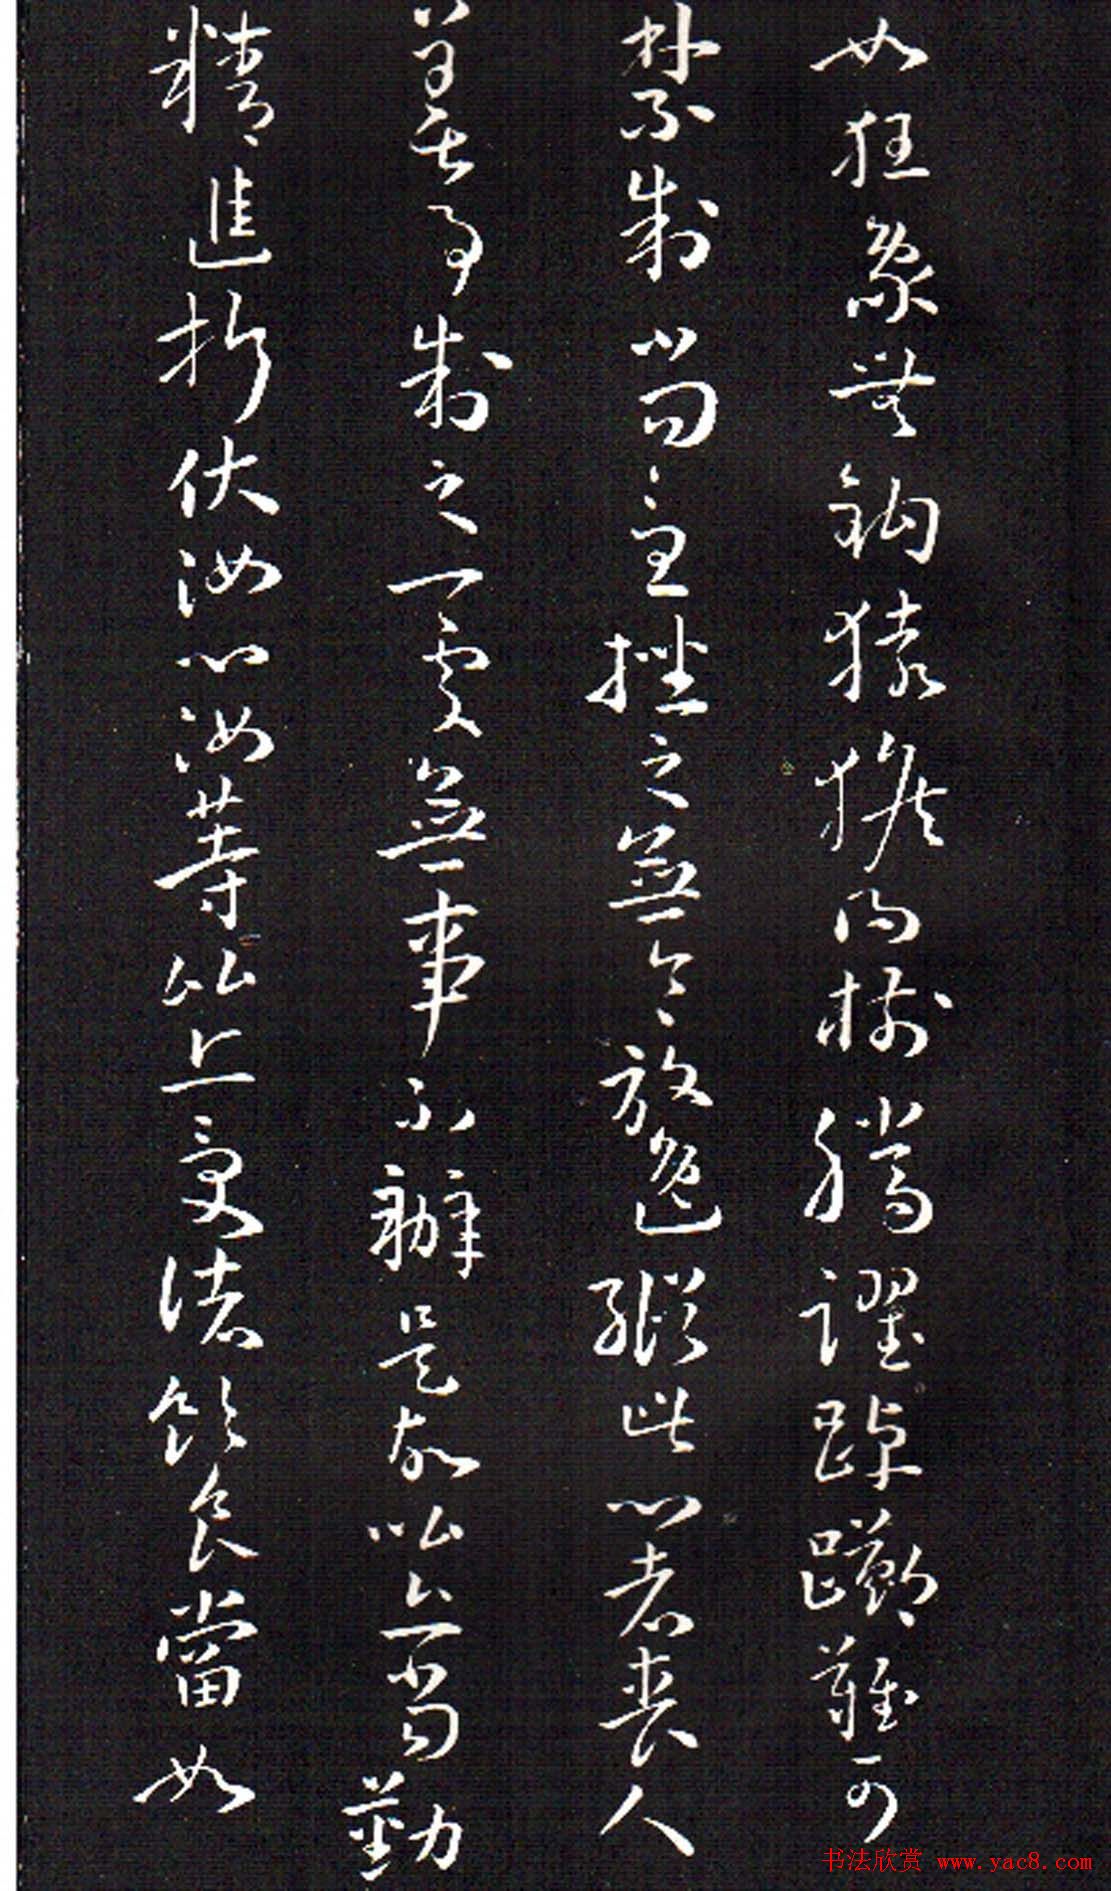 如狂象無鈎猿猴得樹騰躍踔躑難可
禁制當急挫之無令放逸縱此心者喪人
善事制之一處無事不辦是故比丘當勤
精進折伏汝心汝等比丘受諸飲食當如
书法欣赏 www.yac8.com